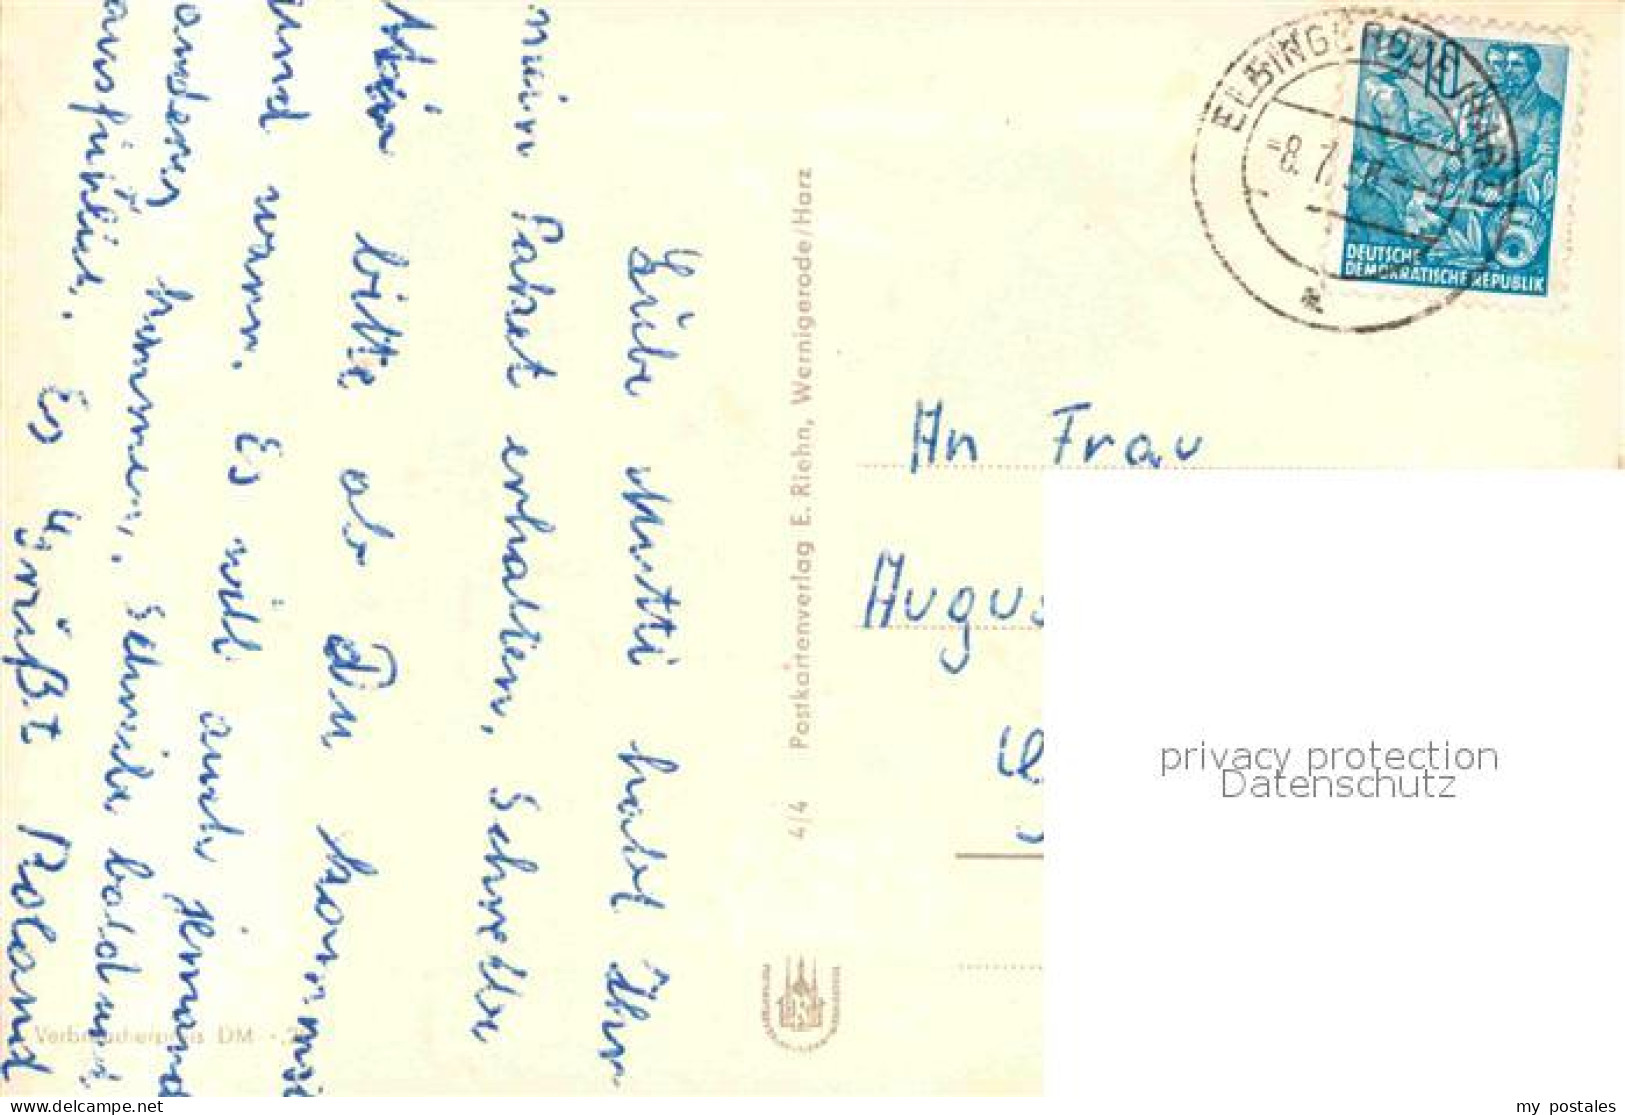 Liebe Mutti hast Ihr
mein Paket erhalten, Schreibe
Mir bitte ob Du kommst
und wann. Es will auch jemand
anderes kommen. Schreibe bald und
ausführlich.
Es grüßt Roland
Verbraucherpreis DM -,2
4/4 Postkartenverlag E. Riehn, Wernigerode/Harz
ELBINGERODE (HARZ)
-8.7.
10
5
DEUTSCHE
DEMOKRATISCHE REPUBLIK
An Frau
Augus
privacy protection
Datenschutz
www.delcampe.net
my_postales